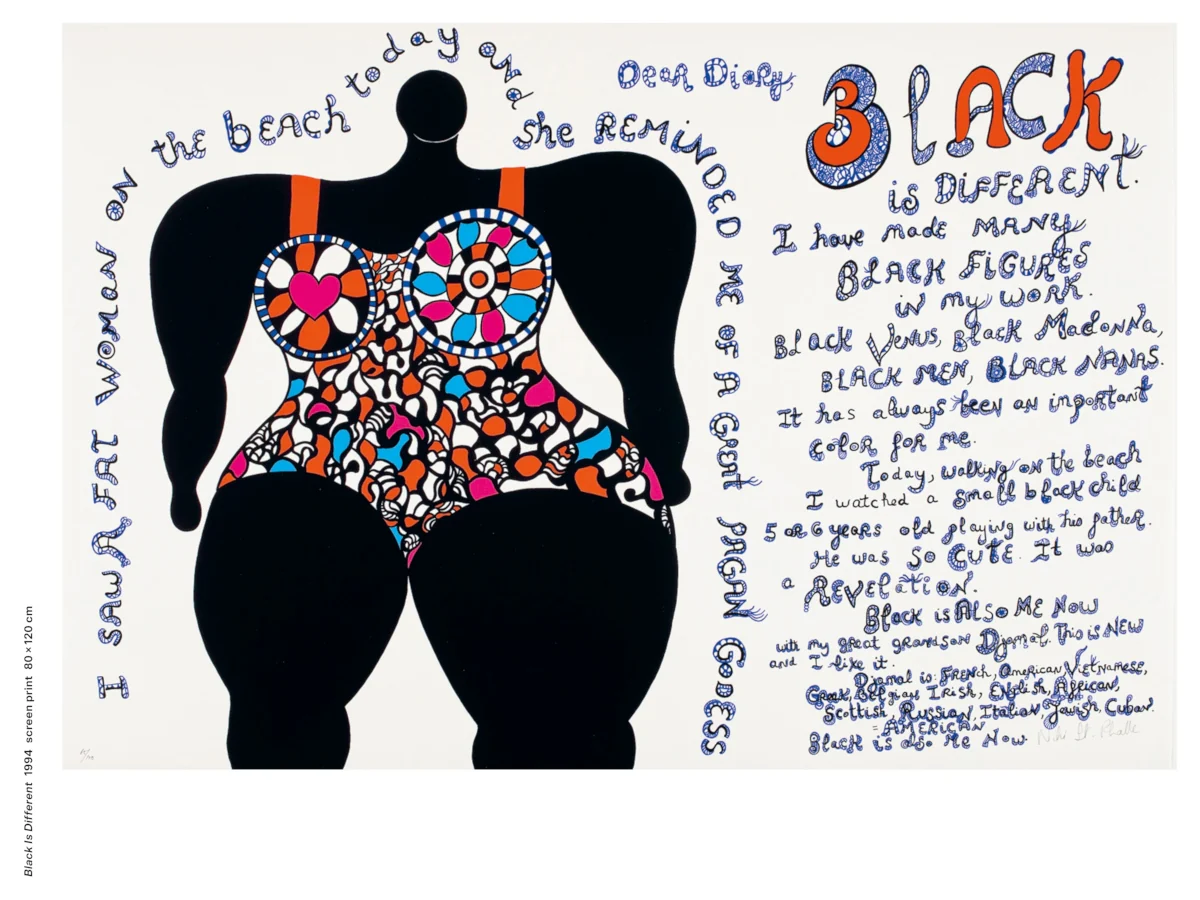 I SAW A FAT WOMAN ON the BEACH today and she REMINDED ME OF A GREAT PAGAN GODESS
Dear Diary,
BlACK
is DiFFERENT.
I have made MANY
BLACK FIGURES
in my work.
Black Venus, Black Madonna,
BLACK MEN, BLACK NANAS.
It has always been an important
color for me.
Today, walking on the beach
I watched a small black child
5 or 6 years old playing with his father.
He was SO CUTE. It was
a REVelation.
Black is ALSO ME NOW
with my great grandson Djamal. This is NEW
and I like it.
Djamal is: FRENch, American Vietnamese,
Greek, Belgian Irish, ENglish, African,
Scottish, Russian, Italian, Jewish, Cuban.
= AMERICAN
Black is also Me Now
Niki St. Phalle
Black Is Different 1994 screen print 80 × 120 cm